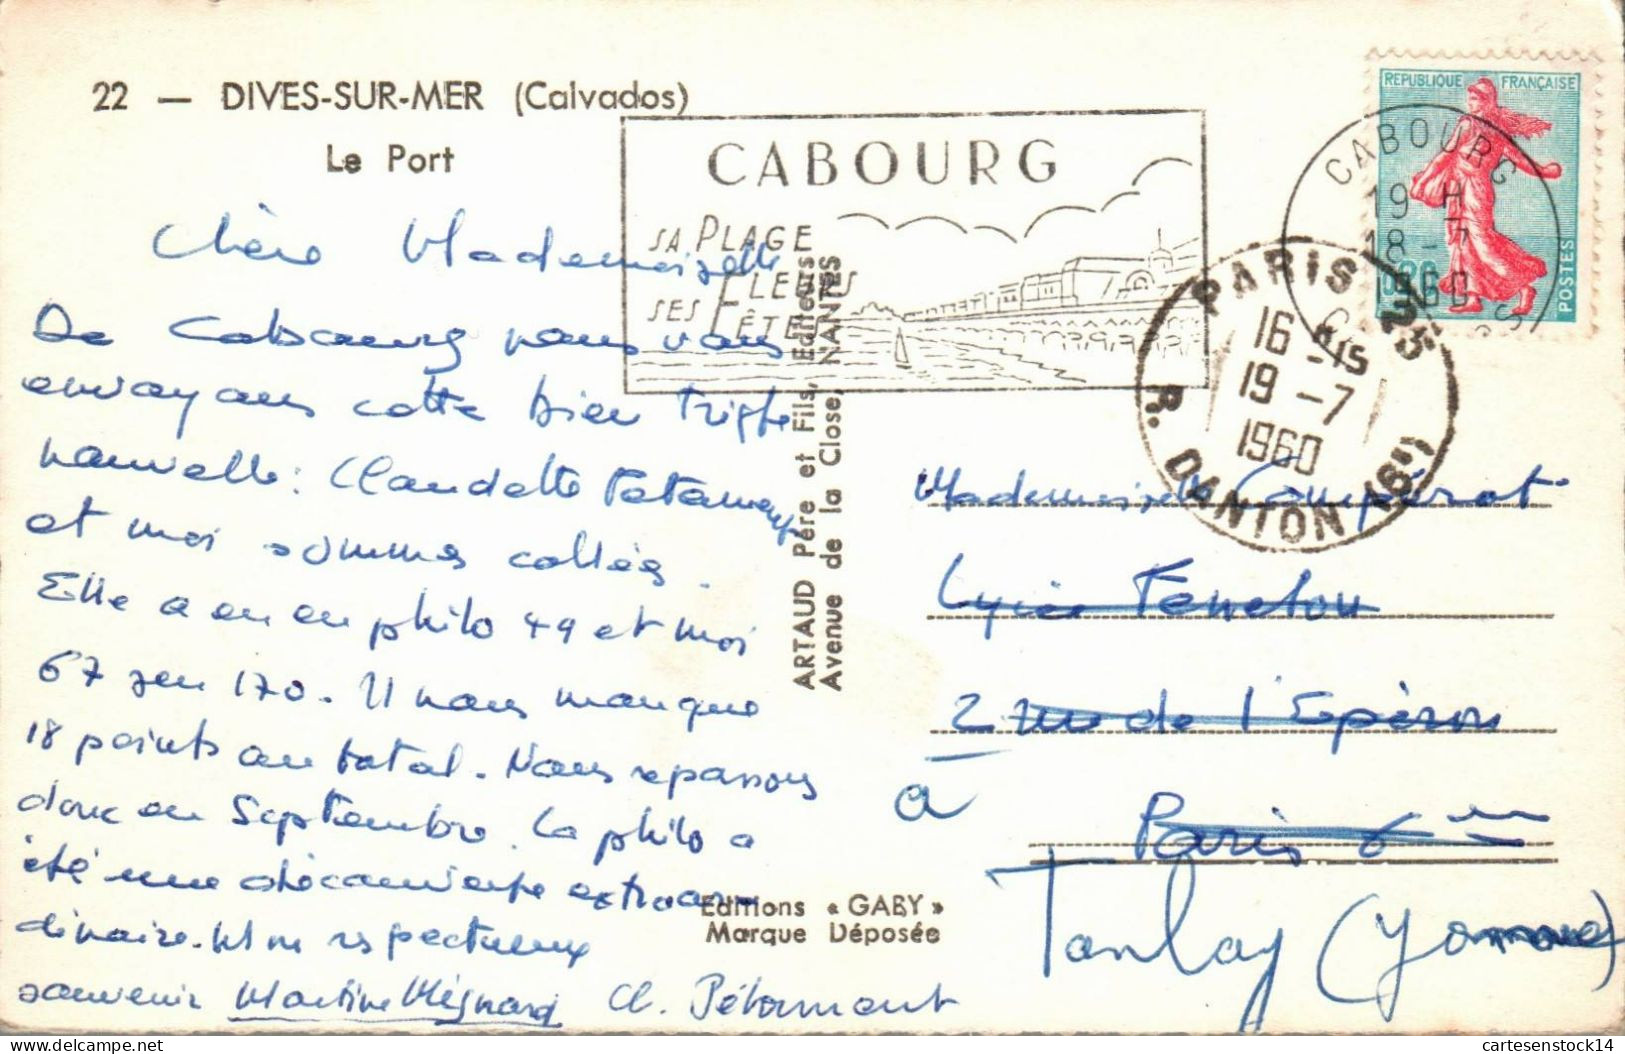 22 — DIVES-SUR-MER (Calvados)
Le Port
Chère Mademoiselle
De Cabourg nous vous
envoyons cette bien triste
nouvelle : Claudette
et moi sommes collées.
Elle a eu en philo 49 et moi
67 sur 170. Il nous manque
18 points au total. Nous repassons
donc en Septembre. La philo a
été une découverte extraor-
dinaire. Un respectueux
souvenir Martine Mégnard Cl. Pétament
ARTAUD Père et Fils, Editeurs
Avenue de la Close, NANTES
Editions « GABY »
Marque Déposée
CABOURG
SA PLAGE
SES FLEURS
FÊTES
REPUBLIQUE FRANÇAISE
POSTES
CABOURG
19 H
18-7
1960
PARIS 25
16 H 15
19-7
1960
R. DANTON (6e)
Mademoiselle Compérot
Lycée Fenelon
2 rue de l'Eperon
à Paris 6
Tanlay (Yonne)
delcampe.net
cartesenstock14